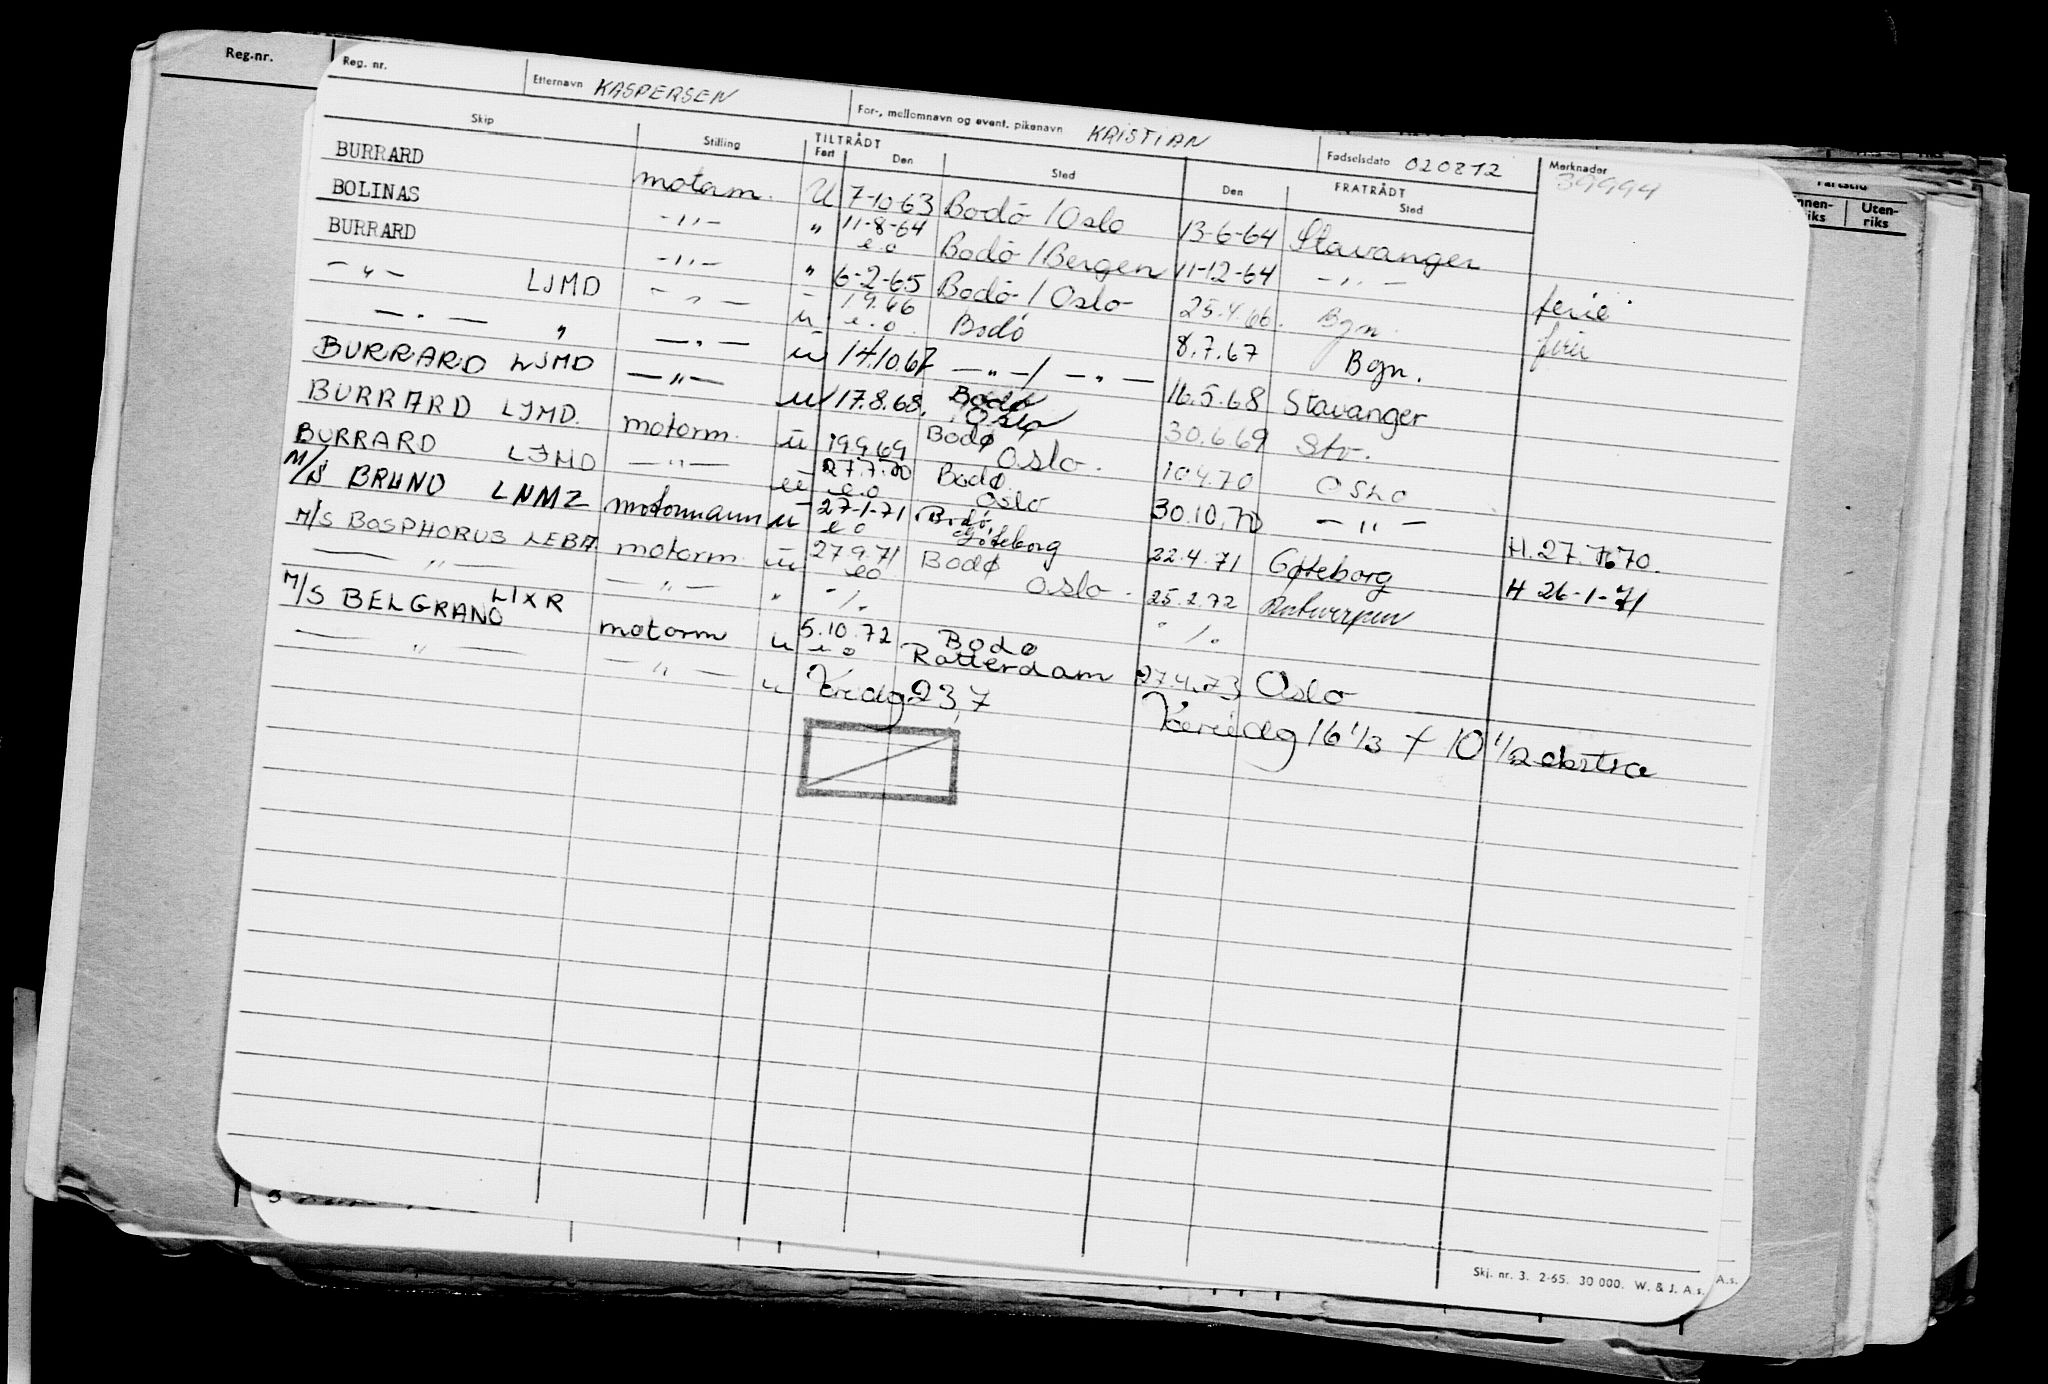 Reg.-nr.
Reg. nr. Etternavn KASPERSEN For-, mellomnavn og event. pikenavn KRISTIAN Fødselsdato 020812 Merknader 39994
Skip Stilling TILTRÅDT Fart Den Sted FRATRÅDT Den Sted
Innen-riks Uten-riks
BURRARD motorm. U 7-10-63 Bodö / Oslo 13-6-64 Stavanger
BOLINAS -"- " 11-8-64 e.o Bodö / Bergen 11-12-64 -"-
BURRARD -"- " 6-2-65 Bodö / Oslo 25.4.66. Bgn. ferie
-"- LJMD -"- u 1.9.66 e.o. Bodö 8.7.67 Bgn.
-"- " -"- u 14.10.67 -"- / -"- 16.5.68 Stavanger
BURRARD LJMD -"- u 17.8.68. Bodø Oslo 30.6.69 Stv.
BURRARD LJMD. motorm. u 19.9.69 Bodø Oslo. 10.4.70 OSLO
BURRARD LJMD -"- u 27.7.70 e.o Bodø Oslo 30.10.70 -"- H. 27.7.70.
M/S BRUNO LNMZ motormann u 27-1-71 e.o Bodø, Gøteborg 22.4.71 Gøteborg H 26-1-71
M/S BOSPHORUS LEBA motorm. u 27.9.71 e.o Bodø Oslo. 25.2.72 Antwerpen
-"- -"- " -/. -/.
M/S BELGRANO LIXR motorm u 5.10.72 e.o Bodø Rotterdam 27.4.73 Oslo
-"- -"- u 23,7 16 1/3 + 10 1/2 ekstra
Skj. nr. 3. 2-65. 30 000. W. & J. A.s.
A.s.